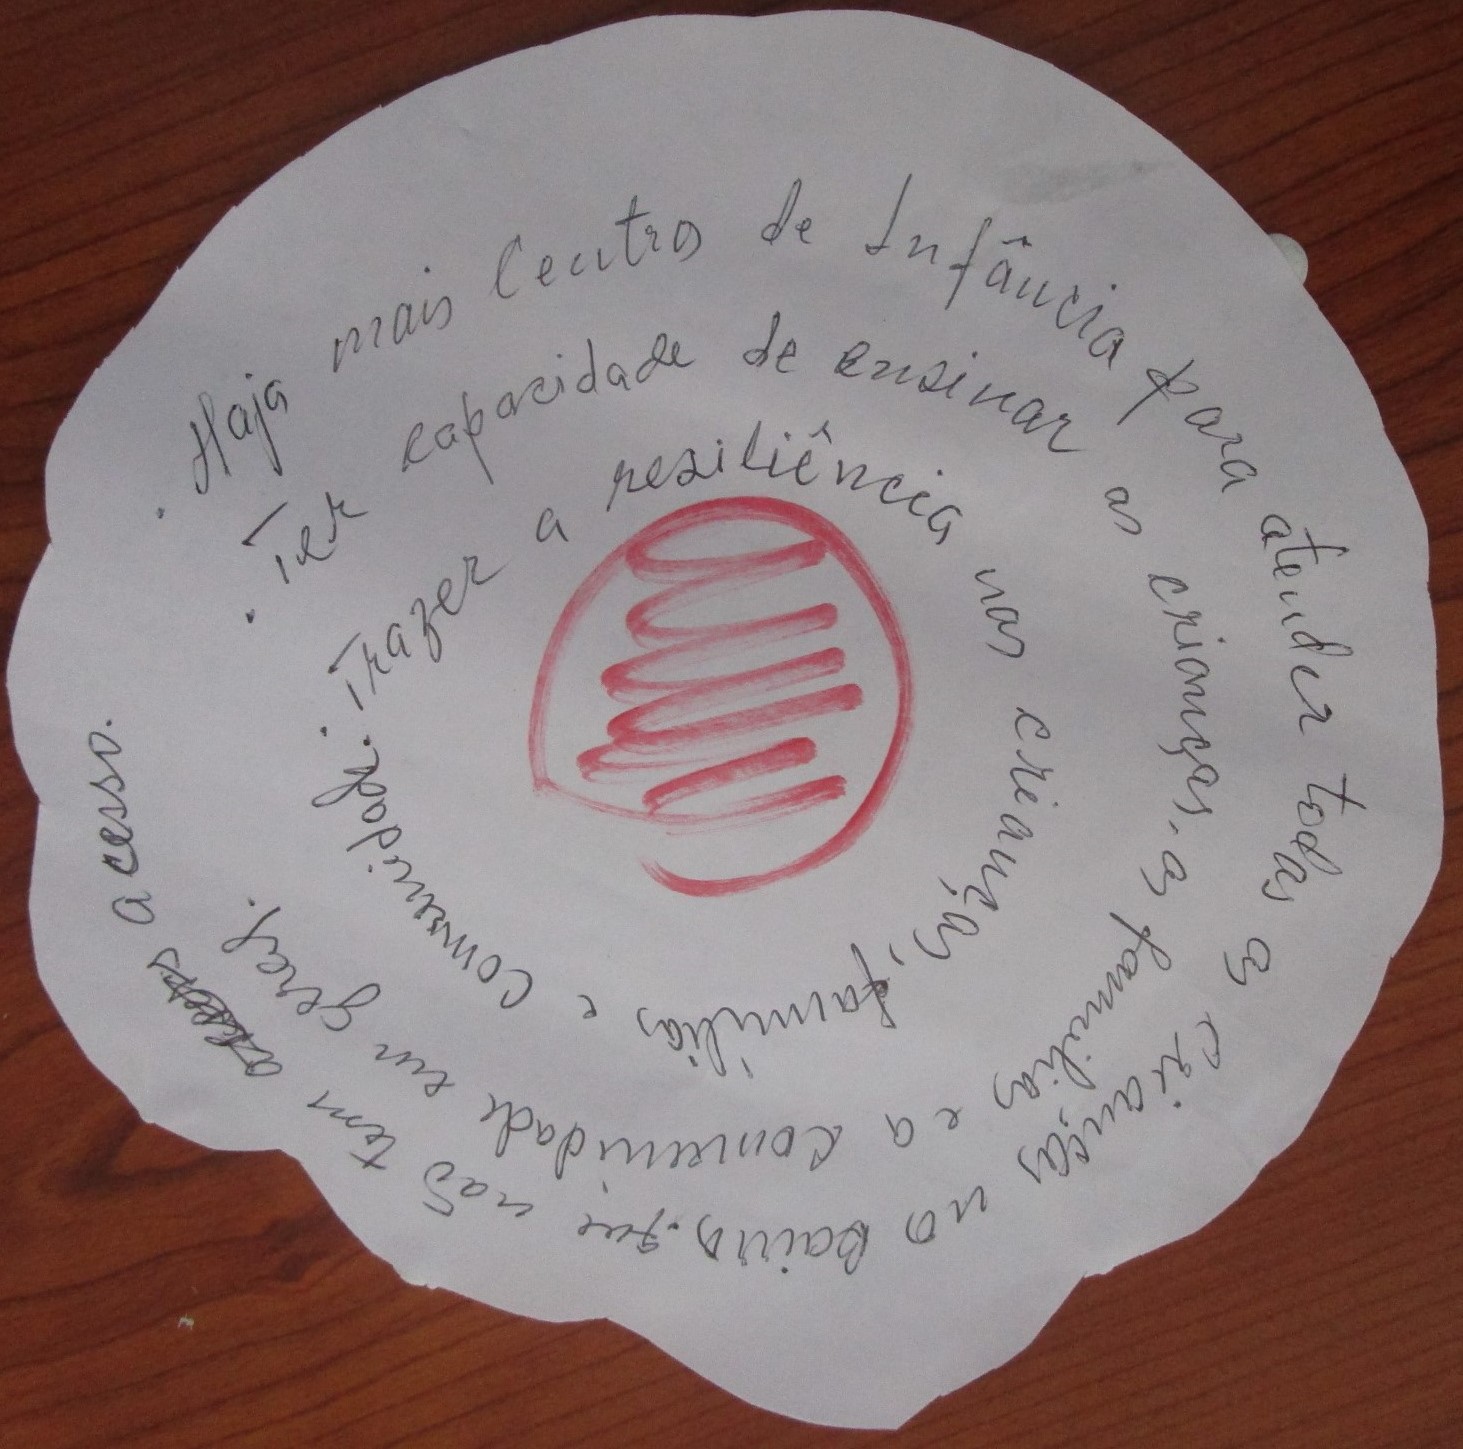 . Haja mais Centro de Infância para atender todas as crianças no bairro. que não tem acesso.
. Ter capacidade de ensinar as crianças. as familias e a comunidade em geral.
. Trazer a resiliência nas crianças, famílias e Comunidade.